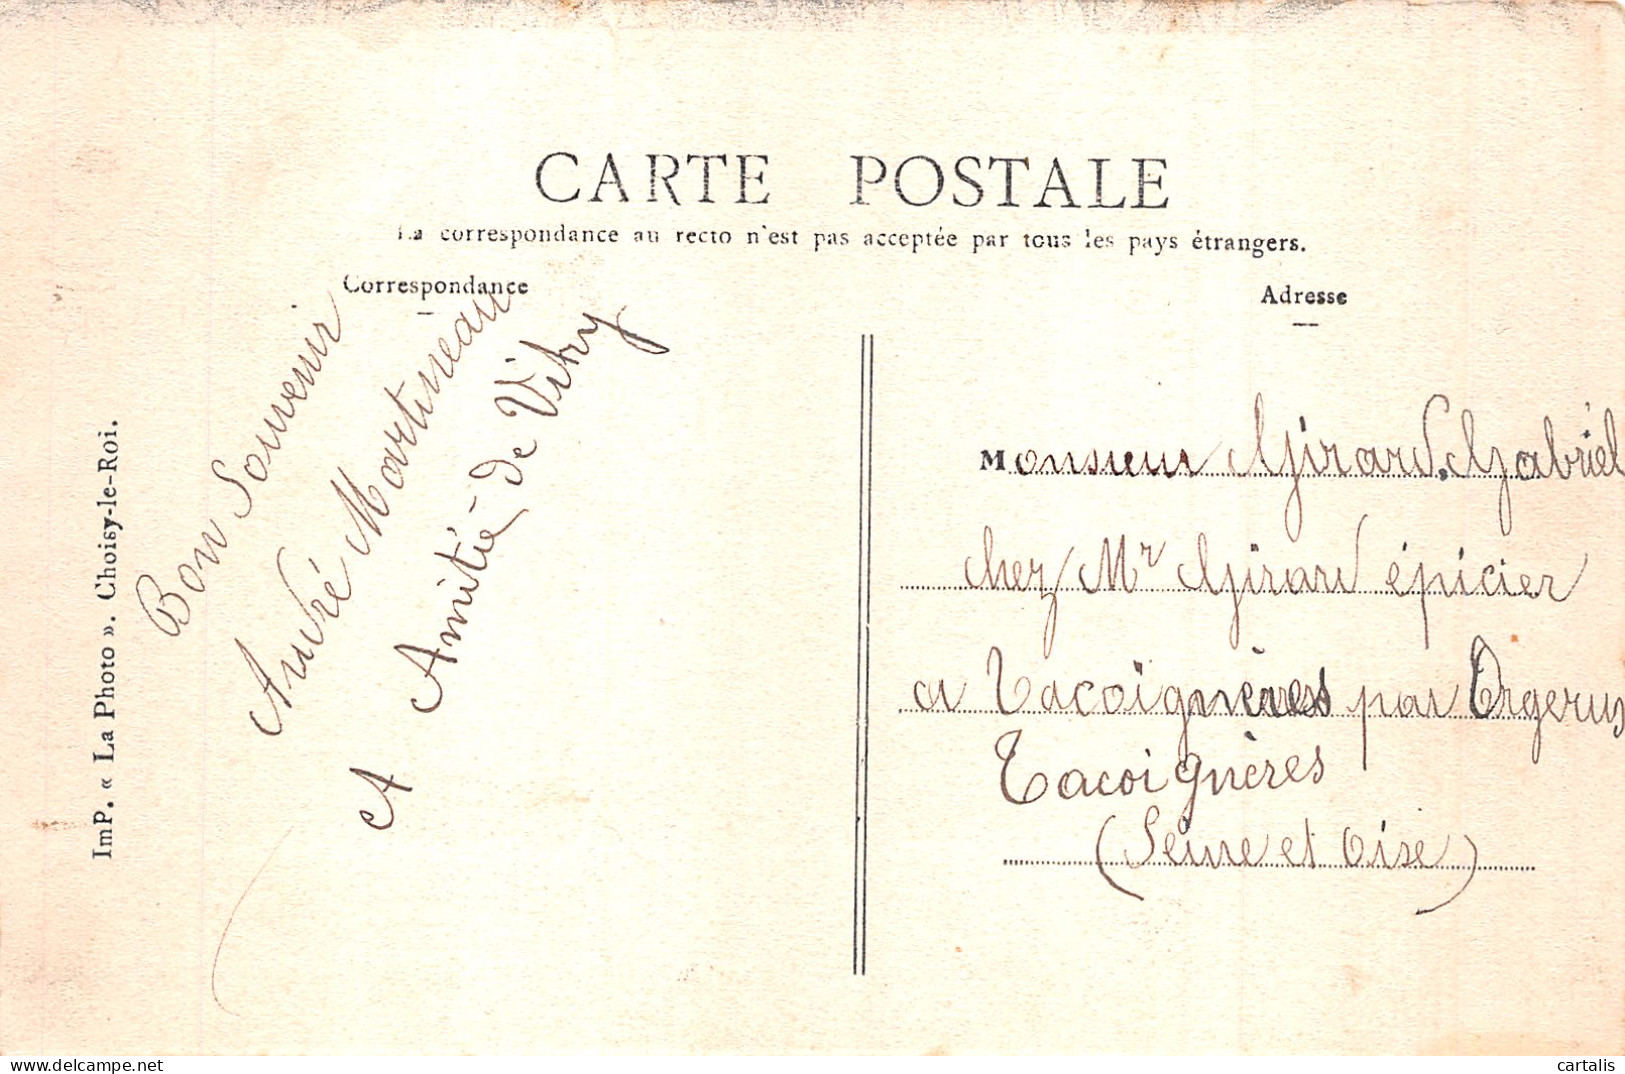 CARTE POSTALE
La correspondance au recto n'est pas acceptée par tous les pays étrangers.
Correspondance
Adresse
ImP. « La Photo ». Choisy-le-Roi.
Bon Souvenir
André Martineau
A Amitié de Vitry
Monsieur Girard. Gabriel
chez Mr Girard épicier
a Tacoignères par Orgerus
Tacoignères
(Seine et Oise)
cartalis